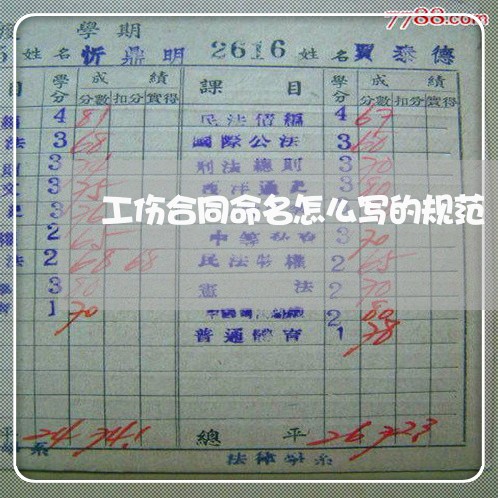 7788.com
學期
姓名 忻鼎明 2616 姓名 賈泰德
目 學分 成績 課目 學分 成績
分數 扣分 實得 分數 扣分 實得
4 81 民法債編 4 67
法 3 68 國際公法 3 60
則 3 刑法總則 3 70
文 3 75 西洋通史 3 80
工伤合同命名怎么写的规范
2 65 3 70
法 2 68 68 民法物權 2 65
3 80 憲法 2 70
1 70 2 80
普通體育 1 78
平 24 74.1 總平 26 72.3
系 法律學系